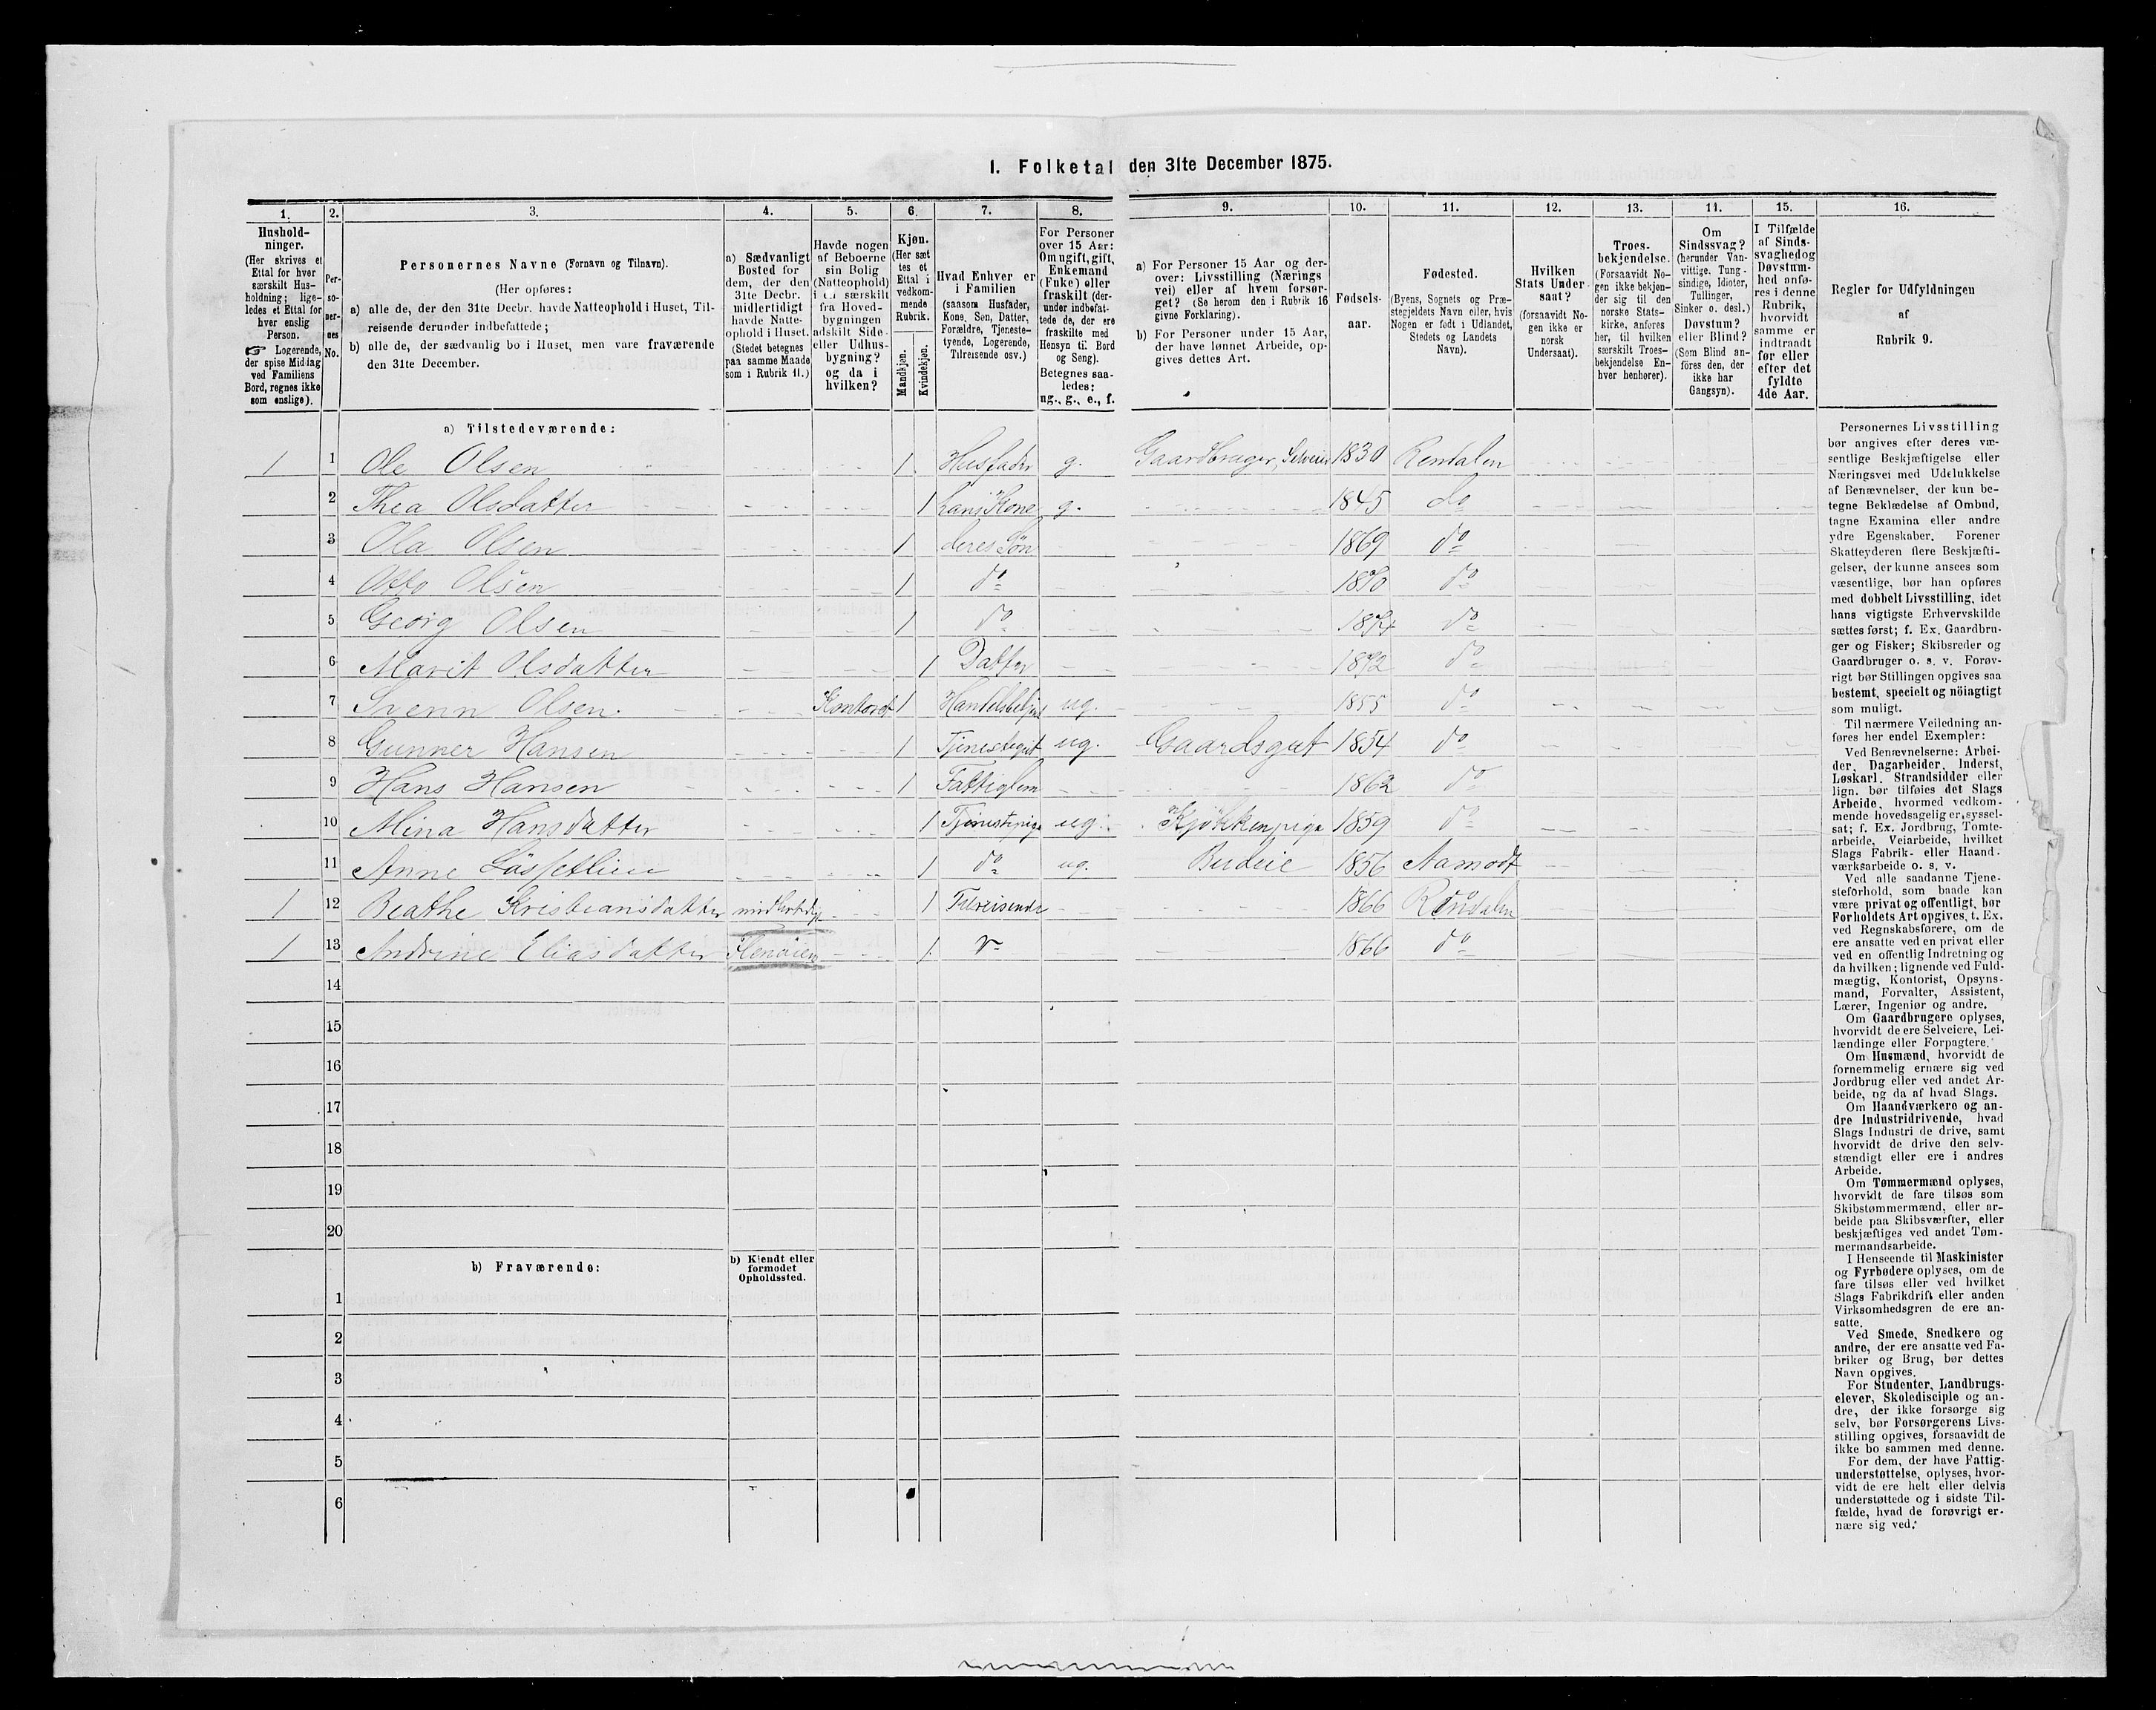 1. Folketal den 31te December 1875.
1. 2. 3. 4. 5. 6. 7. 8. 9. 10. 11. 12. 13. 14. 15. 16.
Hushold-
ninger.
(Her skrives et
Ettal for hver
særskilt Hus-
holdning; lige-
ledes et Ettal for
hver enslig
Person.
☞ Logerende,
der spise Middag
ved Familiens
Bord, regnes ikke
som enslige).
Per-
so-
ner-
nes
No.
Personernes Navne (Fornavn og Tilnavn).
(Her opføres:
a) alle de, der den 31te Decbr. havde Natteophold i Huset, Til-
reisende derunder indbefattede;
b) alle de, der sædvanlig bo i Huset, men vare fraværende
den 31te December.
a) Sædvanligt
Bosted for
dem, der den
31te Decbr.
midlertidigt
havde Natte-
ophold i Huset.
(Stedet betegnes
paa samme Maade
som i Rubrik 11.)
Havde nogen
af Beboerne
sin Bolig
(Natteophold)
i en særskilt
fra Hoved-
bygningen
adskilt Side-
eller Udhus-
bygning?
og da i
hvilken?
Kjøn.
(Her sæt
tes et
Ettal i
vedkom-
mende
Rubrik.
Mandkjøn.
Kvindekjøn.
Hvad Enhver er
i Familien
(saasom Husfader,
Kone, Søn, Datter,
Forældre, Tjeneste-
tyende, Logerende,
Tilreisende osv.)
For Personer
over 15 Aar:
Om ugift, gift,
Enkemand
(Enke) eller
fraskilt (der-
under indbefat-
tede de, der ere
fraskilte med
Hensyn til Bord
og Seng).
Betegnes saa-
ledes:
ug., g., e., f.
a) For Personer 15 Aar og der-
over: Livsstilling (Nærings
vei) eller af hvem forsør-
get? (Se herom den i Rubrik 16
givne Forklaring).
b) For Personer under 15 Aar,
der have lønnet Arbeide, op-
gives dettes Art.
Fødsels-
aar.
Fødested.
(Byens, Sognets og Præ-
stegjeldets Navn eller, hvis
Nogen er født i Udlandet,
Stedets og Landets
Navn).
Hvilken
Stats Under
saat?
(forsaavidt No-
gen ikke er
norsk
Undersaat).
Troes-
bekjendelse.
(Forsaavidt No-
gen ikke bekjen-
der sig til den
norske Stats-
kirke, anføres
her, til hvilken
særskilt Troes-
bekjendelse En-
hver henhører).
Om
Sindssvag?
(herunder Van-
vittige, Tung-
sindige, Idioter,
Tullinger,
Sinker o. desl.)
Døvstum?
eller Blind?
(Som Blind an-
føres den, der
ikke har
Gangsyn).
I Tilfælde
af Sinds-
svaghed og
Døvstum-
hed anfø-
res i denne
Rubrik,
hvorvidt
samme er
indtraadt
før eller
efter det
fyldte
4de Aar.
Regler for Udfyldningen
af
Rubrik 9.
a) Tilstedeværende:
1 1 Ole Olsen 1 Husfader g. Gaardbruger, Selveier 1830 Rendalen
2 Thea Olsdatter 1 hans Kone g. 1845 do
3 Ola Olsen 1 deres Søn 1869 do
4 Otto Olsen 1 do 1870 do
5 Georg Olsen 1 do 1874 do
6 Marit Olsdatter 1 Datter 1872 do
7 Svenn Olsen Kontoret 1 ug. 1855 do
8 Gunner Hansen 1 Tjenestegut ug. Gaardsgut 1854 do
9 Hans Hansen 1 Fattiglem 1862 do
10 Mina Hansdatter 1 Tjenestepige ug. Kjøkkenpige 1859 do
11 Anne 1 do ug. Budeie 1856 Aamodt
1 12 Beathe Kristiansdatter midlertidigt 1 Tilreisende 1866 Rendalen
1 13 Andrine Eliasdatter 1 1866 do
14
15
16
17
18
19
20
b) Fraværende:
b) Kjendt eller
formodet
Opholdssted.
1
2
3
4
5
6
Personernes Livsstilling
bør angives efter deres væ-
sentlige Beskjæftigelse eller
Næringsvei med Udelukkelse
af Benævnelser, der kun be-
tegne Beklædelse af Ombud,
tagne Examina eller andre
ydre Egenskaber. Forener
Skatteyderen flere Beskjæfti-
gelser, der kunne ansees som
væsentlige, bør han opføres
med dobbelt Livsstilling, idet
hans vigtigste Erhvervskilde
sættes først; f. Ex. Gaardbru-
ger og Fisker; Skibsreder og
Gaardbruger o. s. v. Forøv-
rigt bør Stillingen opgives saa
bestemt, specielt og nöiagtigt
som muligt.
Til nærmere Veiledning an-
føres her endel Exempler:
Ved Benævnelserne: Arbei-
der, Dagarbeider, Inderst,
Løskarl, Strandsidder eller
lign. bør tilføies det Slags
Arbeide, hvormed vedkom-
mende hovedsagelig er syssel-
sat; f. Ex. Jordbrug, Tomte-
arbeide, Veiarbeide, hvilket
Slags Fabrik- eller Haand-
værksarbeide o. s. v.
Ved alle saadanne Tjene-
steforhold, som baade kan
være privat og offentligt, bør
Forholdets Art opgives, t. Ex.
ved Regnskabsførere, om de
ere ansatte ved en privat eller
ved en offentlig Indretning og
da hvilken; lignende ved Fuld-
mægtig, Kontorist, Opsyns-
mand, Forvalter, Assistent,
Lærer, Ingeniør og andre.
Om Gaardbrugere oplyses,
hvorvidt de ere Selveiere, Lei-
lændinge eller Forpagtere.
Om Husmænd, hvorvidt de
fornemmelig ernære sig ved
Jordbrug eller ved andet Ar-
beide, og da af hvad Slags.
Om Haandværkere og an-
dre Industridrivende, hvad
Slags Industri de drive, samt
hvorvidt de drive den selv-
stændigt eller ere i andres
Arbeide.
Om Tømmermænd oplyses,
hvorvidt de fare tilsøs som
Skibstømmermænd, eller ar-
beide paa Skibsværfter, eller
beskjæftiges ved andet Tøm-
mermandsarbeide.
I Henseende til Maskinister
og Fyrbødere oplyses, om de
fare tilsøs eller ved hvilket
Slags Fabrikdrift eller anden
Virksomhedsgren de ere an-
satte.
Ved Smede, Snedkere og
andre, der ere ansatte ved Fa-
briker og Brug, bør dettes
Navn opgives.
For Studenter, Landbrugs-
elever, Skoledisciple og an-
dre, der ikke forsørge sig
selv, bør Forsørgerens Livs-
stilling opgives, forsaavidt de
ikke bo sammen med denne.
For dem, der have Fattig-
understøttelse, oplyses, hvor-
vidt de ere helt eller delvis
understøttede og i sidste Til-
fælde, hvad de forøvrigt er-
nære sig ved.